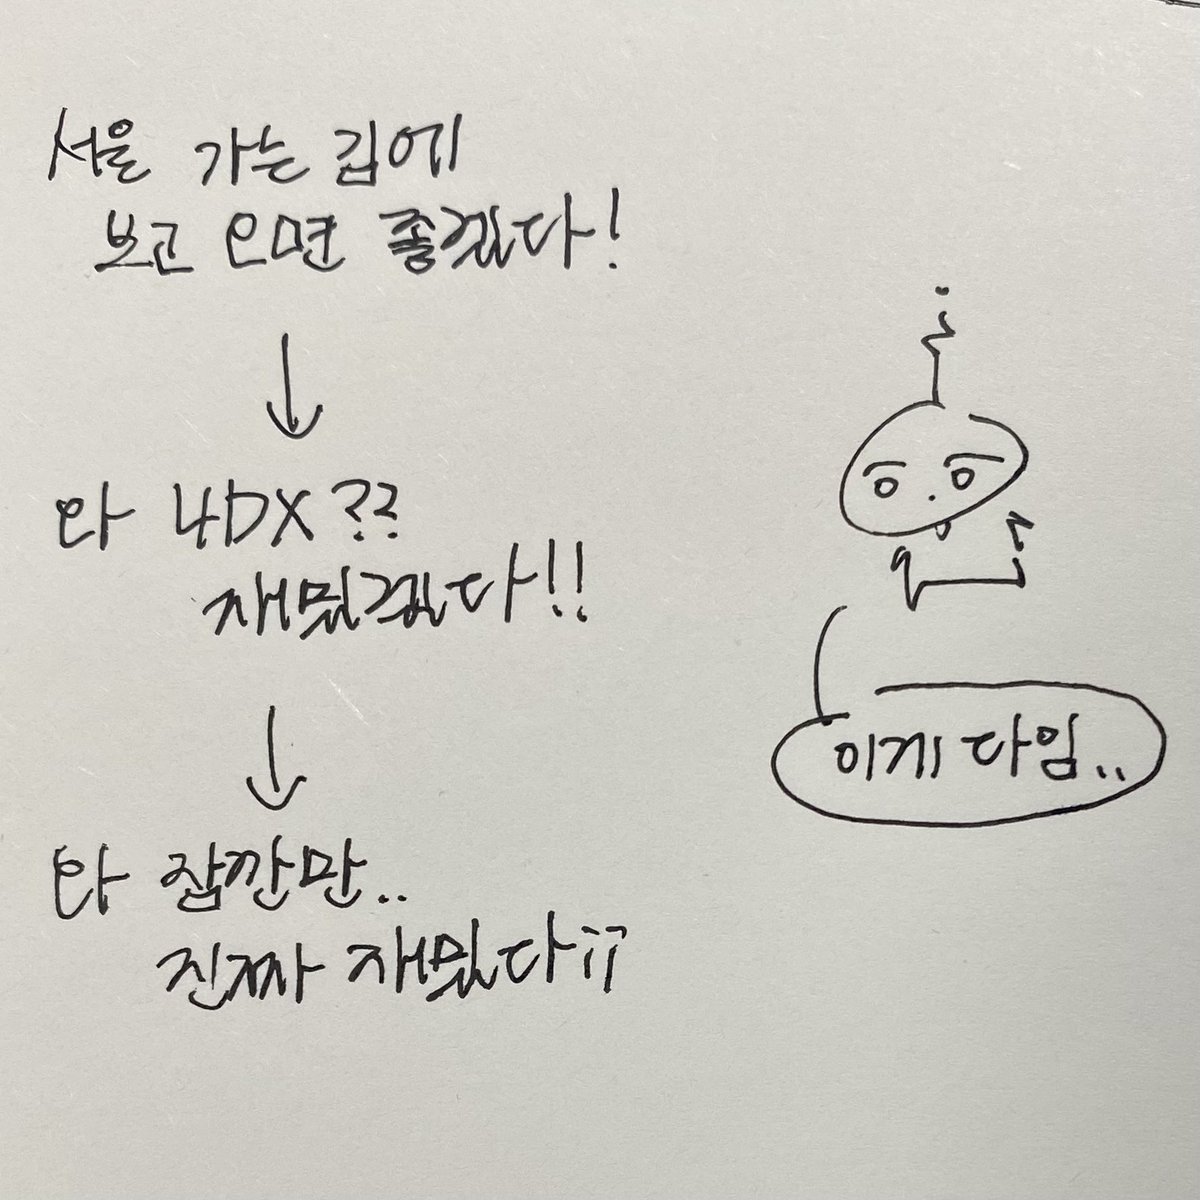 서울 가는 김에
보고 오면 좋겠다!
와 4DX??
재밌겠다!!
와 잠깐만..
진짜 재밌다ㅠㅠ
이게 다임..